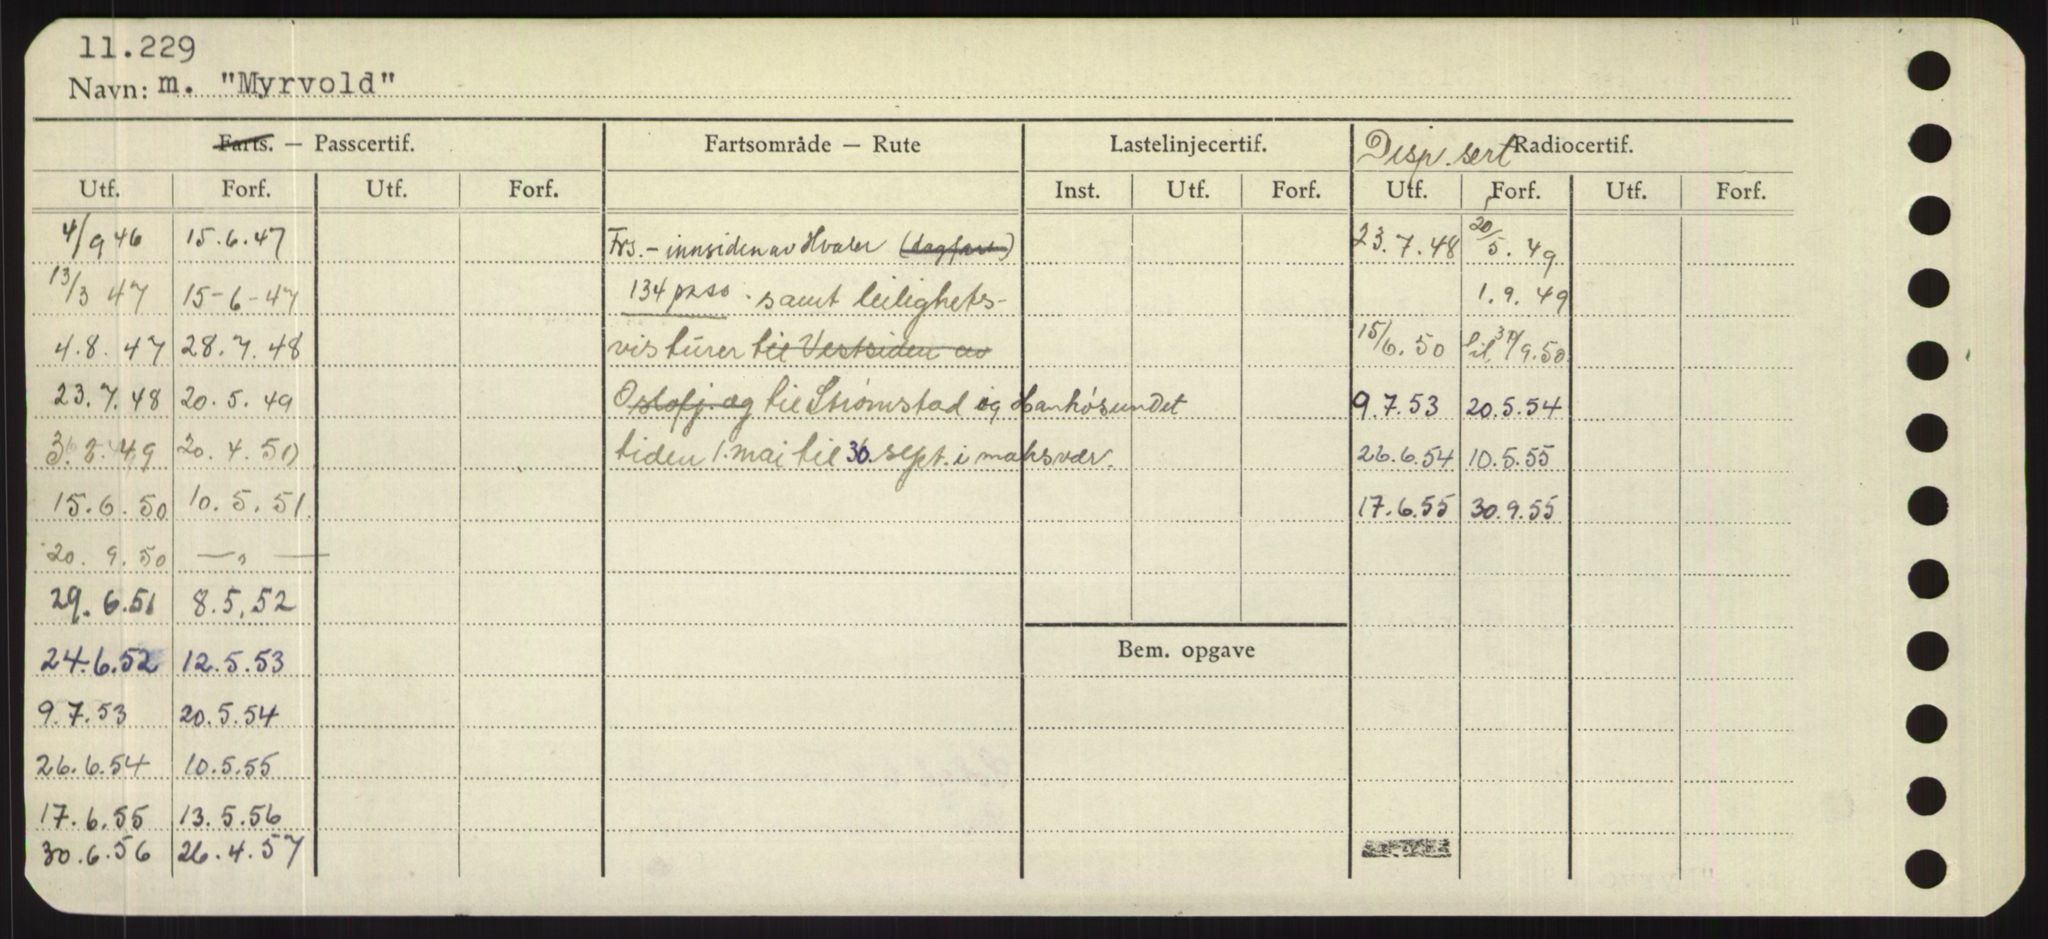 11.229
Navn: m. "Myrvold"
Farts. — Passcertif. Fartsområde — Rute Lastelinjecertif. Disp. sert Radiocertif.
Utf. Forf. Utf. Forf. Inst. Utf. Forf. Utf. Forf. Utf. Forf.
4/9 46 15.6.47 Frs. - innsiden av Hvaler (dagfart) 23.7.48 20/5.49
13/3 47 15-6-47 134 pass. samt leilighets- 1.9.49
4.8.47 28.7.48 vis turer til Vestsiden av 15/6.50 til 30/9.50
23.7.48 20.5.49 Oslofj. og til Strømstad og Hankøsundet 9.7.53 20.5.54
20.4.50 tiden 1. mai til 30. sept. i maksvær. 26.6.54 10.5.55
15.6.50 10.5.51 17.6.55 30.9.55
20.9.50 — " —
29.6.51 8.5.52
Bem. opgave
24.6.52 12.5.53
9.7.53 20.5.54
26.6.54 10.5.55
17.6.55 13.5.56
30.6.56 26.4.57